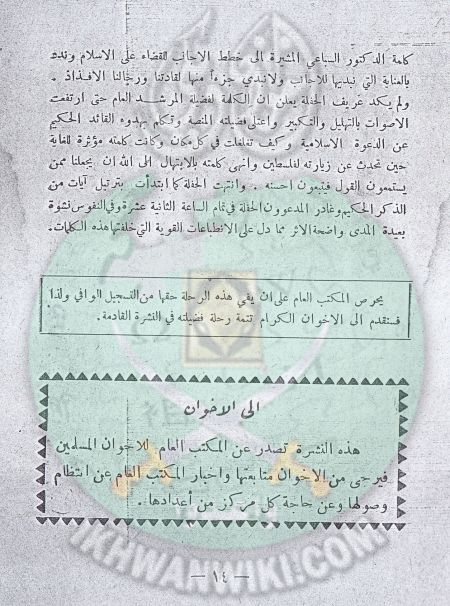 كلمة الدكتور السباعي المشيرة الى خطط الاجانب للقضاء على الاسلام وندد
بالعناية التي نبديها للاجانب ولانبدي جزءاً منها لقادتنا ورجالنا الافذاذ .
ولم يكد عريف الحفلة يعلن ان الكلمة لفضيلة المرشد العام حتى ارتفعت
الاصوات بالتهليل والتكبير واعتلى فضيلته المنصة وتكلم بهدوء القائد الحكيم
عن الدعوة الاسلامية وكيف تغلغلت في كل مكان وكانت كلمته مؤثرة للغاية
حين تحدث عن زيارته لفلسطين وانهى كلمته بالابتهال الى الله ان يجعلنا ممن
يستمعون القول فيتبعون احسنه . وانتهت الحفلة كما ابتدأت بترتيل آيات من
الذكر الحكيم وغادر المدعوون الحفلة في تمام الساعة الثانية عشرة وفي النفوس نشوة
بعيدة المدى واضحة الاثر مما دل على الانطباعات القوية التي خلفتها هذه الكلمات .
يحرص المكتب العام على ان يفي هذه الرحلة حقها من التسجيل الوافي ولذا
فسنقدم الى الاخوان الكرام تتمة رحلة فضيلته في النشرة القادمة .
الى الاخوان
هذه النشرة تصدر عن المكتب العام للاخوان المسلمين
فيرجى من الاخوان متابعتها واخبار المكتب العام عن انتظام
وصولها وعن حاجة كل مركز من أعدادها .
IKHWANWIKI.COM
— ١٤ —